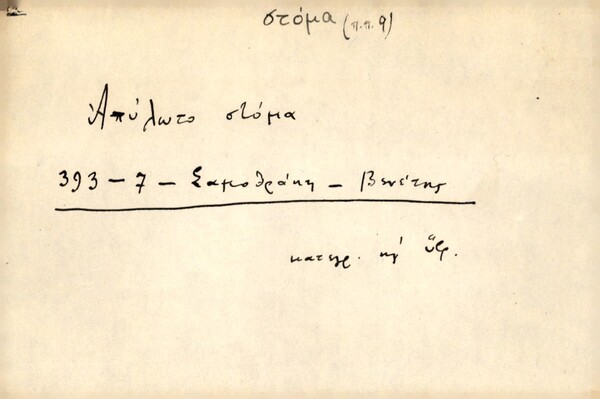 στόμα (π.π. 9)
Ἀπύλωτο στόμα
393 - 7 - Σαμοθράκη - Βενέτης
κατηγρ. κγ' ὕβρ.